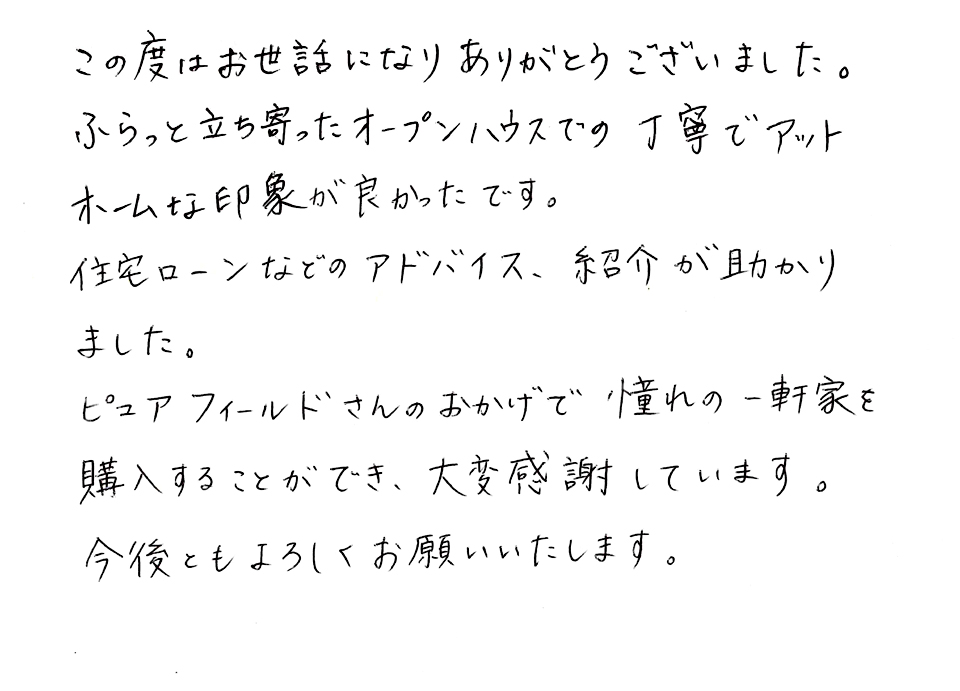 この度はお世話になりありがとうございました。
ふらっと立ち寄ったオープンハウスでの丁寧でアット
ホームな印象が良かったです。
住宅ローンなどのアドバイス、紹介が助かり
ました。
ピュアフィールドさんのおかげで憧れの一軒家を
購入することができ、大変感謝しています。
今後ともよろしくお願いいたします。